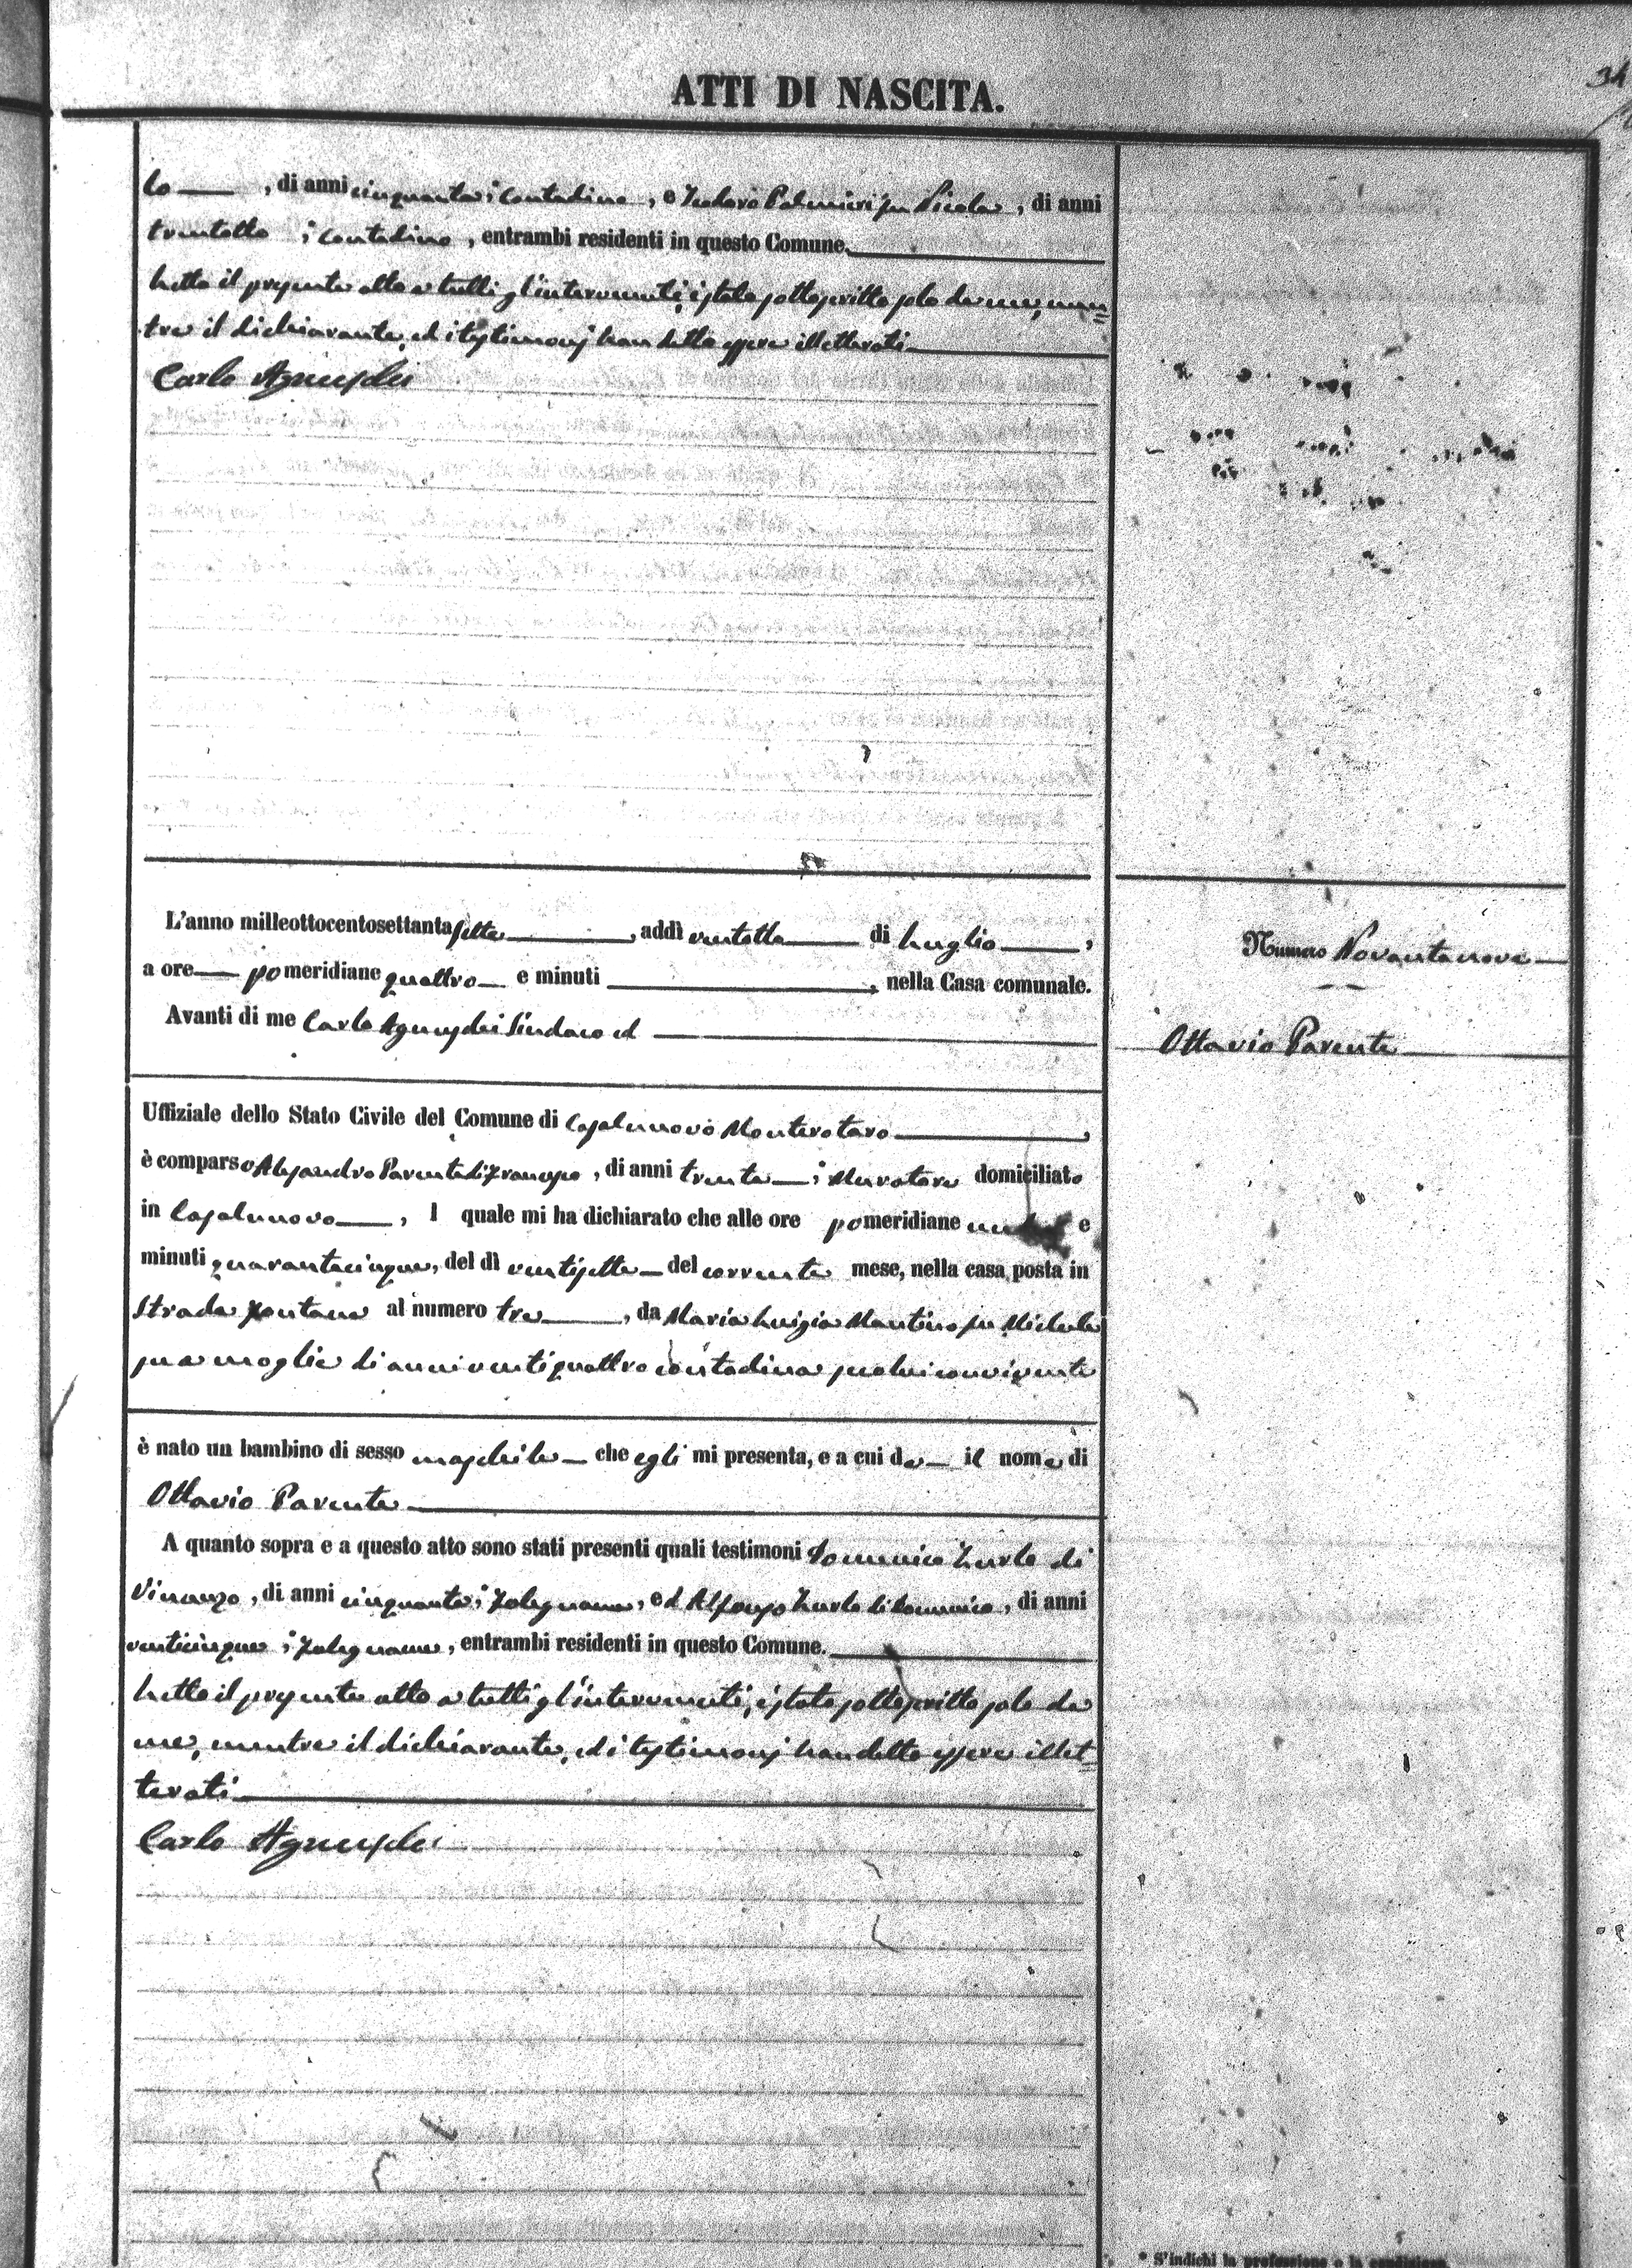 ATTI DI NASCITA.
34
lo , di anni cinquanta; Contadino, e Teodoro Palmieri fu Nicola, di anni
trentotto ; contadino, entrambi residenti in questo Comune.
Letto il presente atto a tutti gl'intervenuti, è stato sottoscritto solo da me, men=
tre il dichiarante, ed i testimonj han detto essere illetterati
Carlo Agnusdei
L'anno milleottocentosettantasette, addì ventotto di Luglio,
a ore pomeridiane quattro e minuti , nella Casa comunale.
Avanti di me Carlo Agnusdei Sindaco ed
Numero Novantanove
Ottavio Parente
Uffiziale dello Stato Civile del Comune di Casalnuovo Monterotaro,
è comparso Alessandro Parente di Francesco, di anni trenta; Muratore domiciliato
in Casalnuovo, l quale mi ha dichiarato che alle ore pomeridiane e
minuti quarantacinque, del dì ventisette del corrente mese, nella casa posta in
Strada Fontana al numero tre, da Maria Luigia Mantino fu Michele
sua moglie di anni ventiquattro contadina seco lui convivente
è nato un bambino di sesso maschile che egli mi presenta, e a cui da il nome di
Ottavio Parente
A quanto sopra e a questo atto sono stati presenti quali testimoni Domenico Zurlo di
Vincenzo, di anni cinquanta; Falegname, ed Alfonso Zurlo di Domenico, di anni
venticinque; Falegname, entrambi residenti in questo Comune.
Letto il presente atto a tutti gl'intervenuti, è stato sottoscritto solo da
me, mentre il dichiarante, ed i testimonj han detto essere illet=
terati
Carlo Agnusdei
* S'indichi la professione o la condizione.